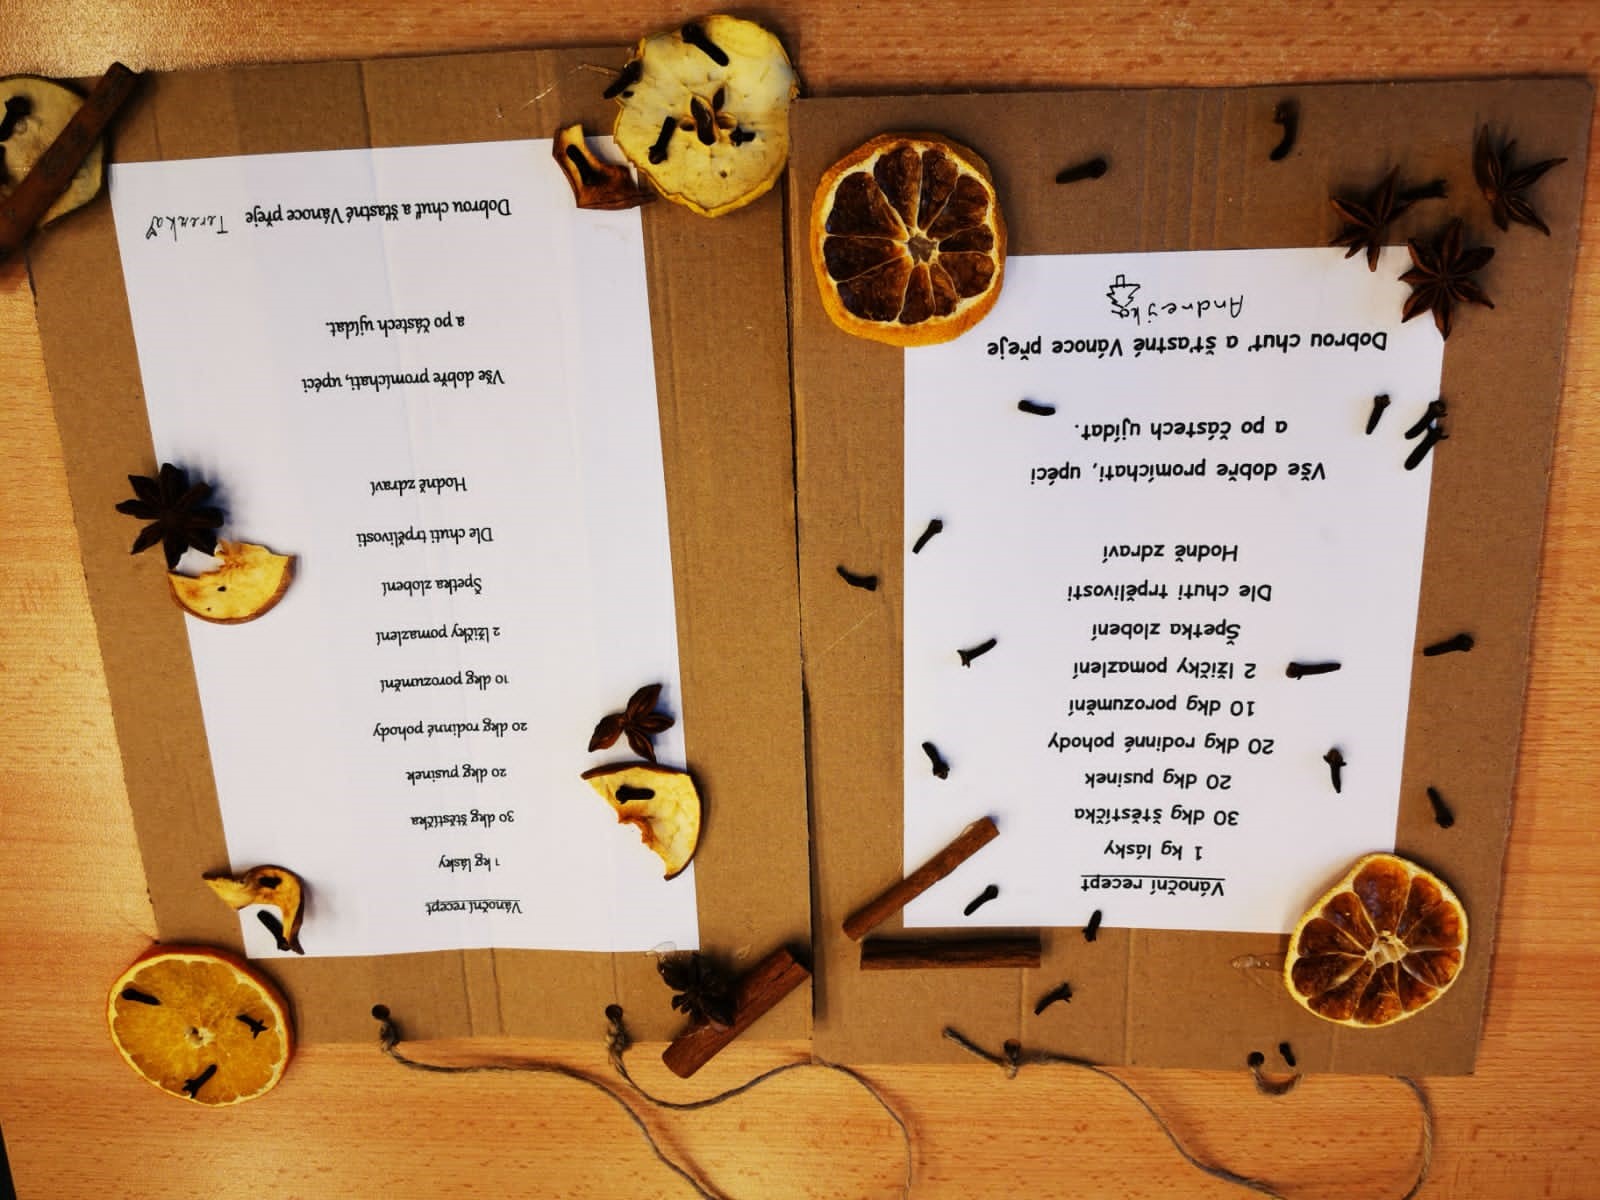 Vánoční recept
1 kg lásky
30 dkg štěstíčka
20 dkg pusinek
20 dkg rodinné pohody
10 dkg porozumění
2 lžičky pomazlení
Špetka zlobení
Dle chuti trpělivosti
Hodně zdraví
Vše dobře promíchati, upéci
a po částech ujídat.
Dobrou chuť a šťastné Vánoce přeje
Andrejka
Vánoční recept
1 kg lásky
30 dkg štěstíčka
20 dkg pusinek
20 dkg rodinné pohody
10 dkg porozumění
2 lžičky pomazlení
Špetka zlobení
Dle chuti trpělivosti
Hodně zdraví
Vše dobře promíchati, upéci
a po částech ujídat.
Dobrou chuť a šťastné Vánoce přeje Terenka